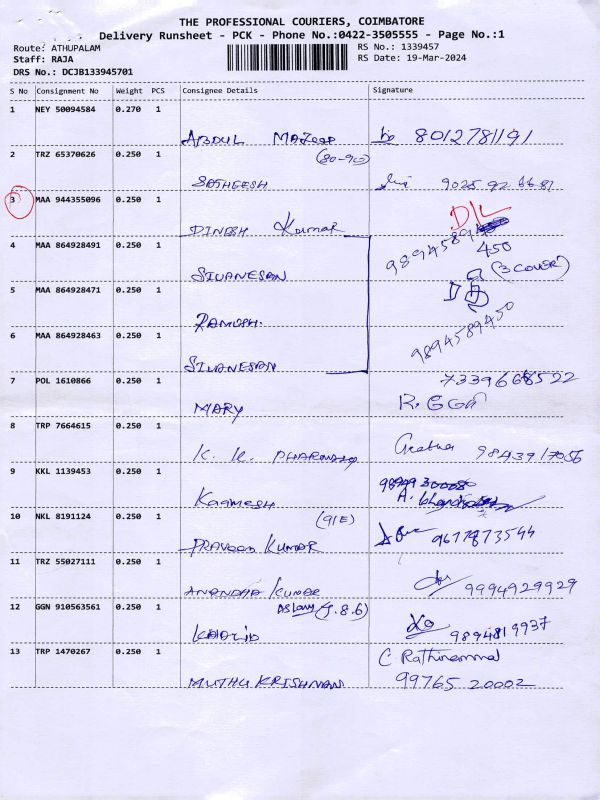 THE PROFESSIONAL COURIERS, COIMBATORE
Delivery Runsheet - PCK - Phone No.:0422-3505555 - Page No.:1
Route: ATHUPALAM
RS No.: 1339457
Staff: RAJA
RS Date: 19-Mar-2024
DRS No.: DCJB133945701
S No Consignment No Weight PCS Consignee Details Signature
1 NEY 50094584 0.270 1
ABDUL 8012781191
2 TRZ 65370626 0.250 1 (80-90)
SATHEESH 9025926681
3 MAA 944355096 0.250 1 D/L
DINESH Kumar
4 MAA 864928491 0.250 1 450
SIVANESAN (3 COVER)
5 MAA 864928471 0.250 1
RAMESH.
6 MAA 864928463 0.250 1 9894589450
SIVANESAN
7 POL 1610866 0.250 1
MARY
8 TRP 7664615 0.250 1
K. K. PHARMACY
9 KKL 1139453 0.250 1
KAAMESH
10 NKL 8191124 0.250 1 (91E)
PRAVEEN KUMAR 9677873544
11 TRZ 55027111 0.250 1
ANANDHA KUMAR 9994929929
12 GGN 910563561 0.250 1 (J.8.6)
KHALID 9894819937
13 TRP 1470267 0.250 1 C. Rathinammal
MUTHU KRISHNAN 99765 20002